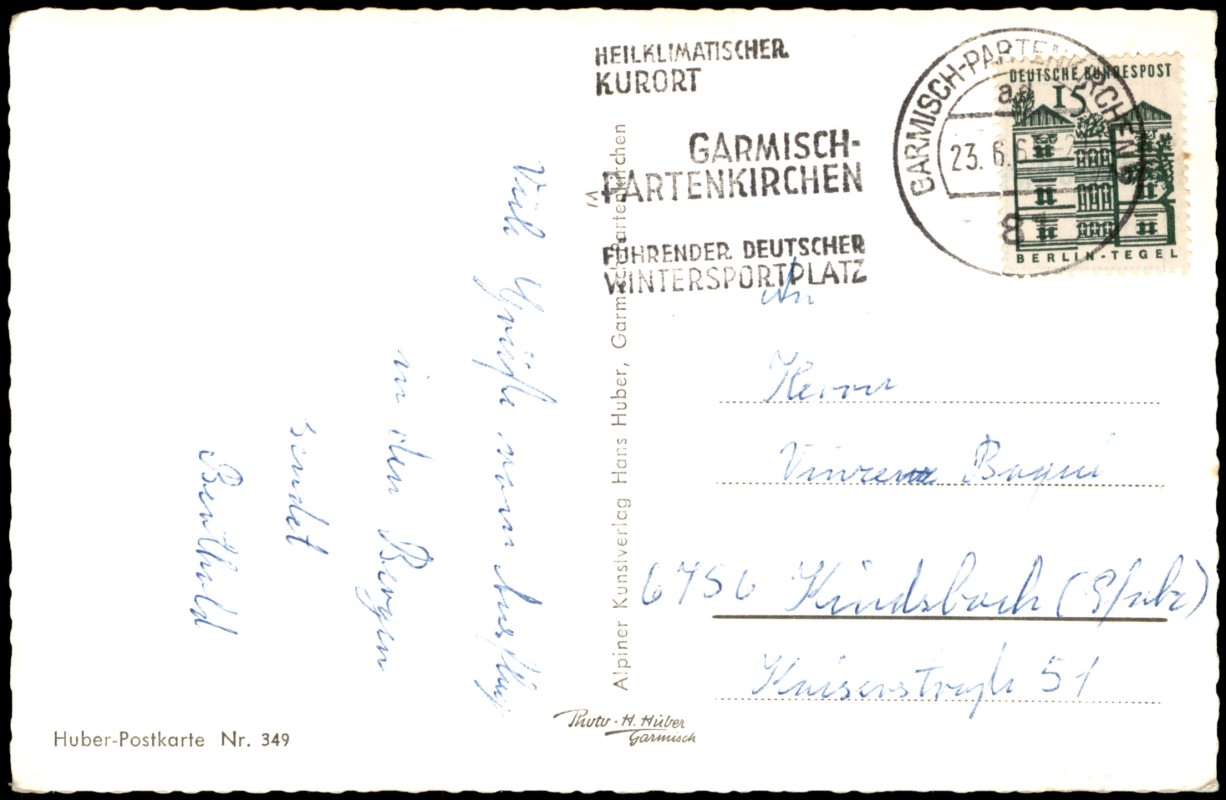 HEILKLIMATISCHER
KURORT
GARMISCH-
PARTENKIRCHEN
FÜHRENDER DEUTSCHER
WINTERSPORTPLATZ
GARMISCH-PARTENKIRCHEN
23. 6.
81
DEUTSCHE BUNDESPOST
15
BERLIN-TEGEL
Viele Grüße vom Ausflug
in den Bergen
sendet
Berthold
Alpiner Kunstverlag Hans Huber, Garmisch-Partenkirchen
An
Herrn
Vinzenz
6756 Kindsbach (Pfalz)
Kaiserstraße 51
Photo-H. Huber
Garmisch
Huber-Postkarte Nr. 349